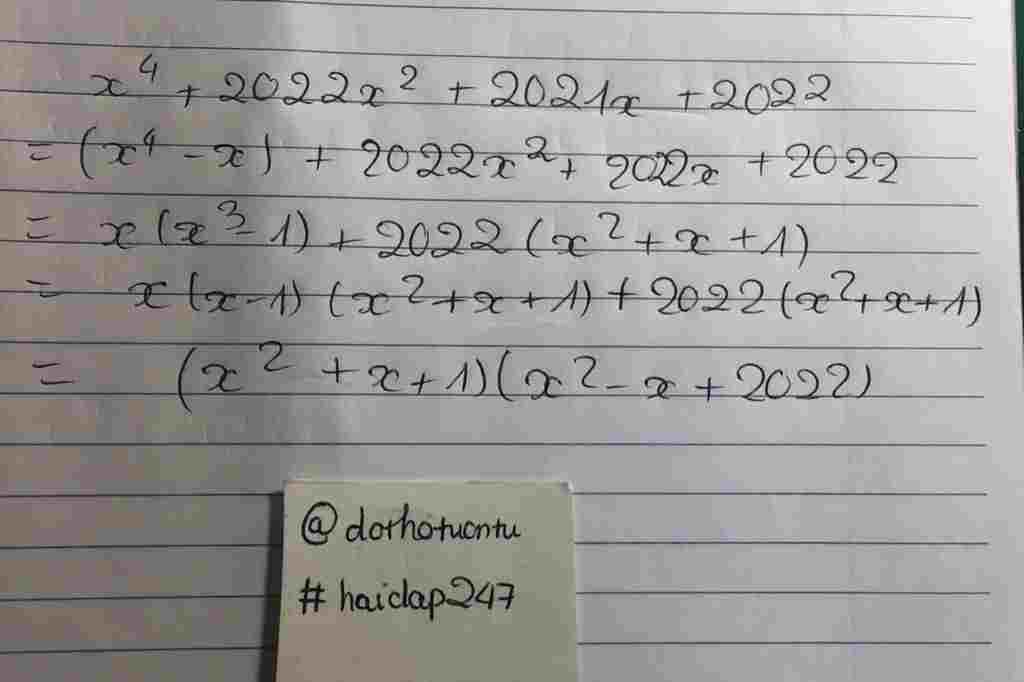 x⁴ + 2022x² + 2021x + 2022
= (x⁴ - x) + 2022x² + 2022x + 2022
= x(x³ - 1) + 2022(x² + x + 1)
= x(x - 1)(x² + x + 1) + 2022(x² + x + 1)
= (x² + x + 1)(x² - x + 2022)
@dothotuontu
#haidap247